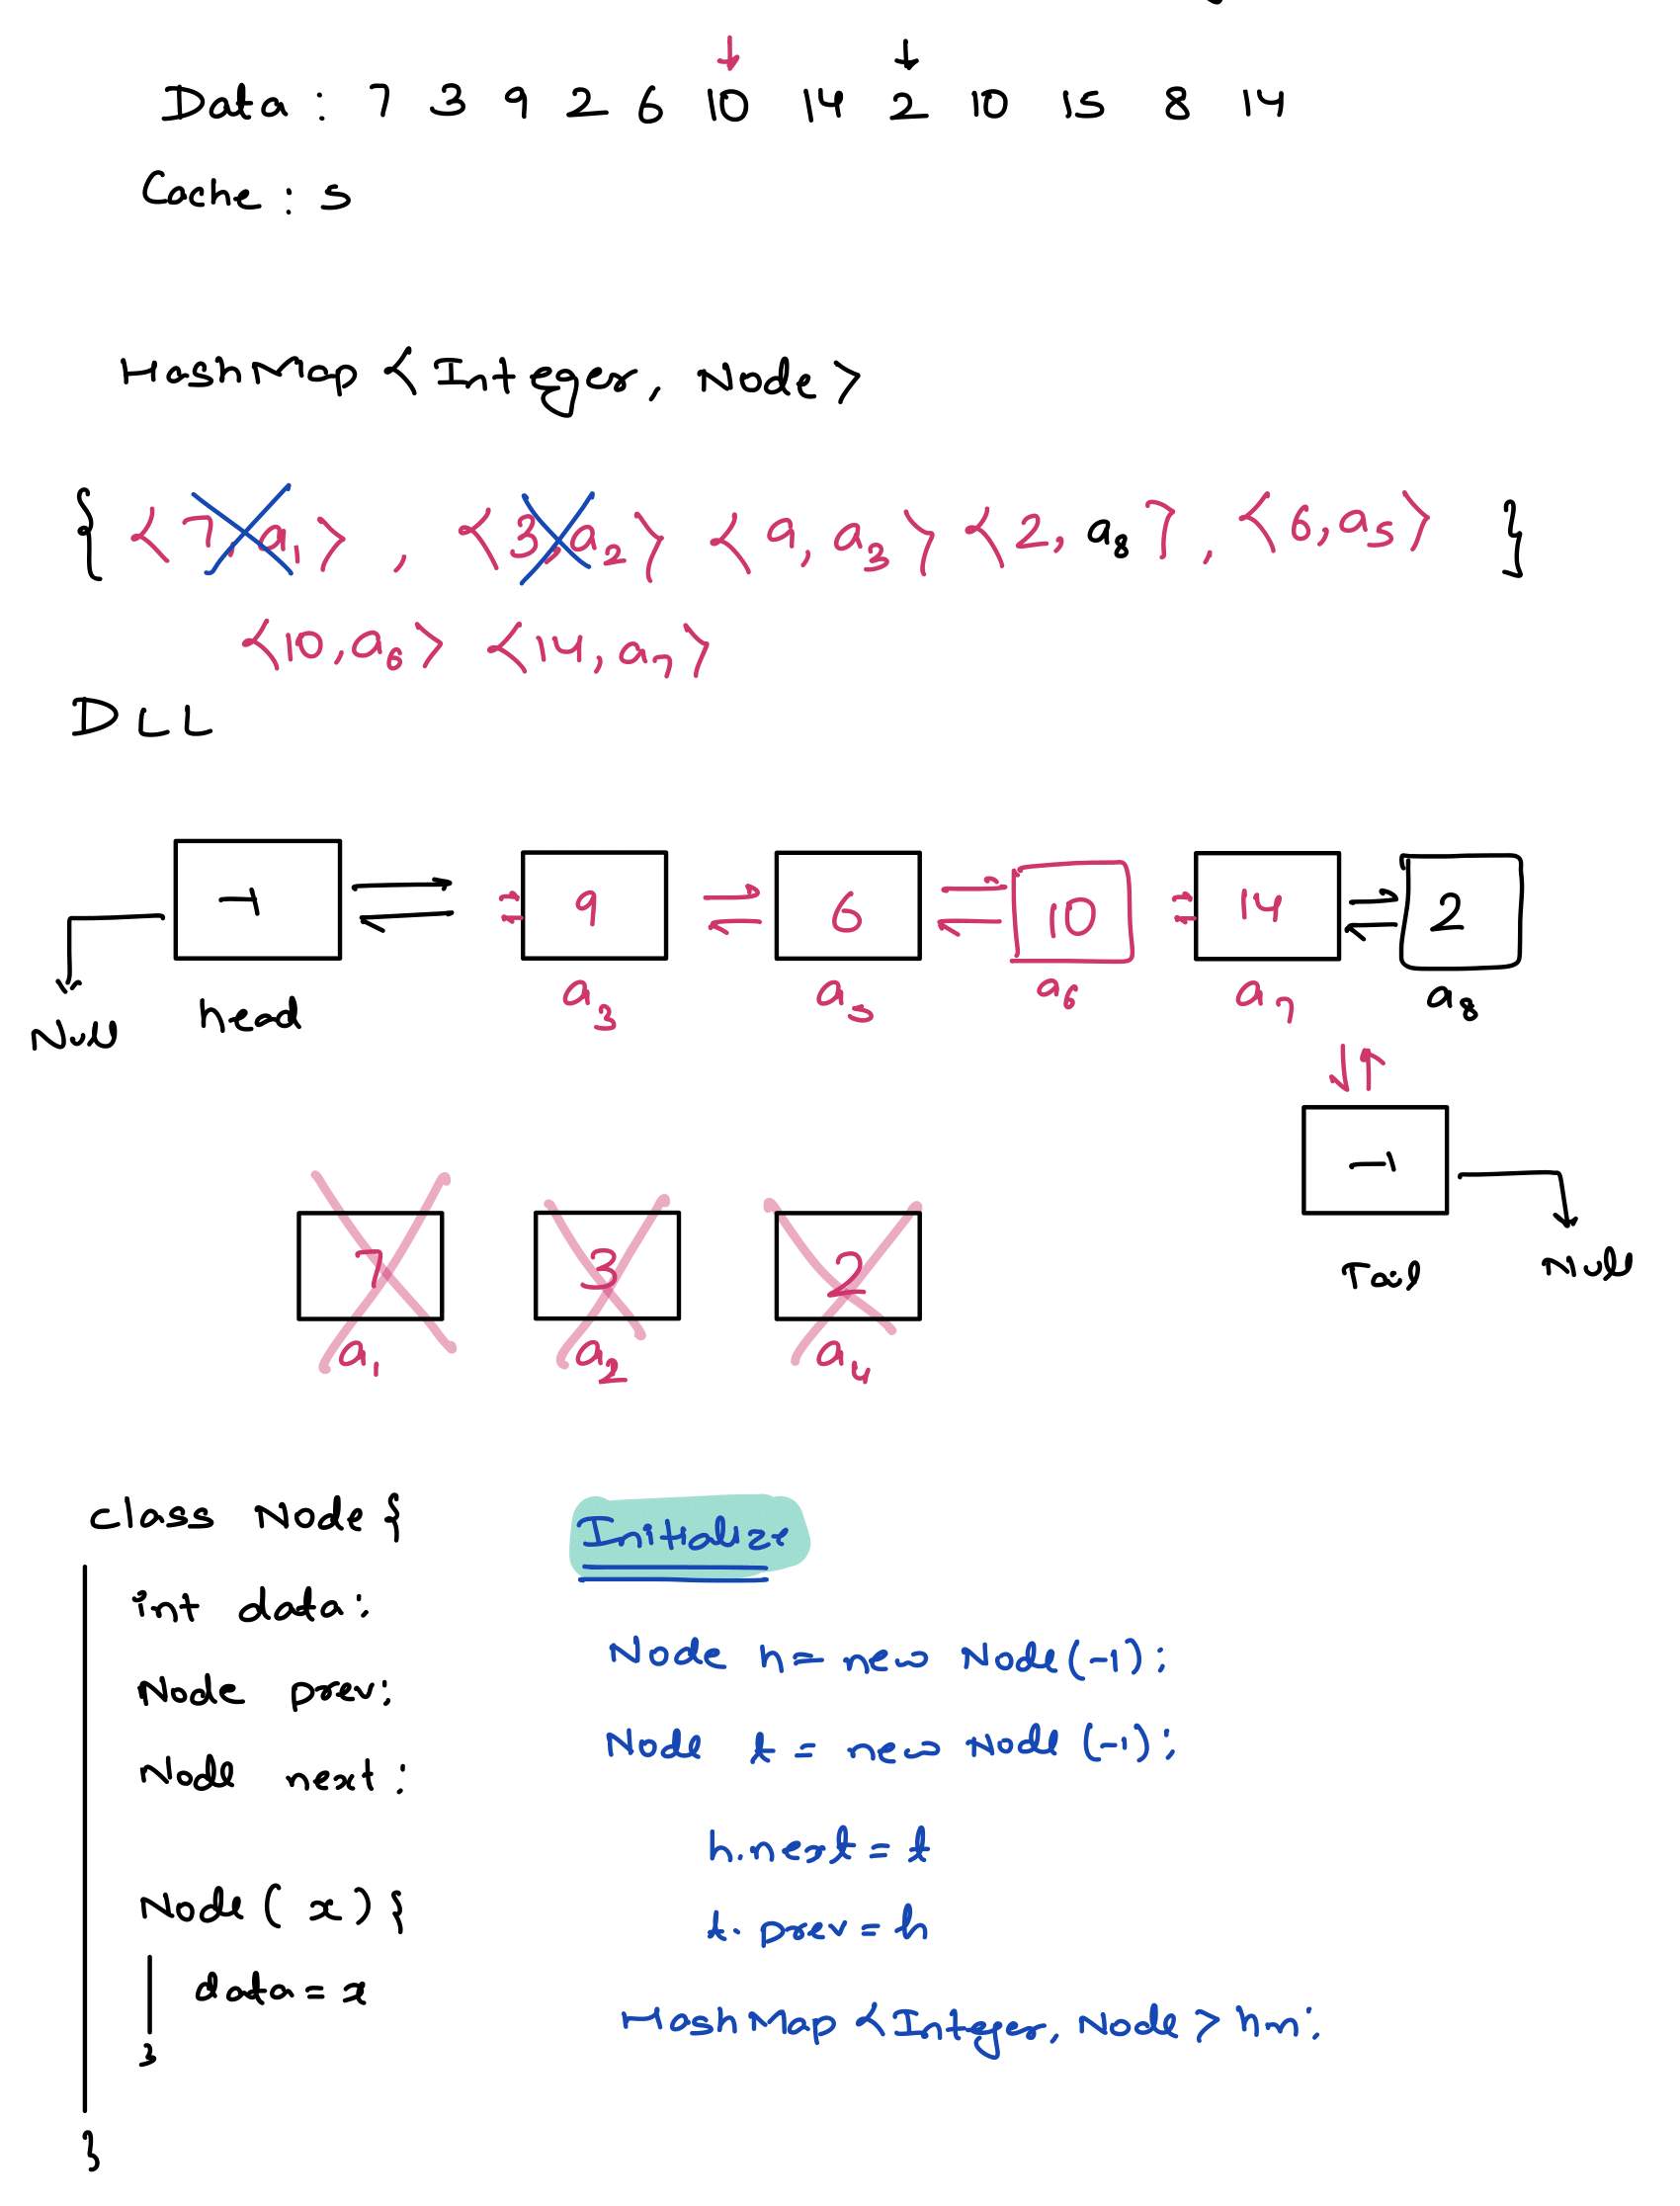 Data : 7 3 9 2 6 10 14 2 10 15 8 14
Cache : 5
HashMap <Integer, Node>
{ <7, a1> , <3, a2> <9, a3> <2, a8> , <6, a5> }
<10, a6> <14, a7>
DLL
-1 9 6 10 14 2
Null head a3 a5 a6 a7 a8
-1
Tail Null
7 3 2
a1 a2 a4
class Node {
int data;
Node prev;
Node next;
Node ( x ) {
data = x
}
}
Initialize
Node h = new Node(-1);
Node t = new Node (-1);
h.next = t
t.prev = h
HashMap <Integer, Node> hm;